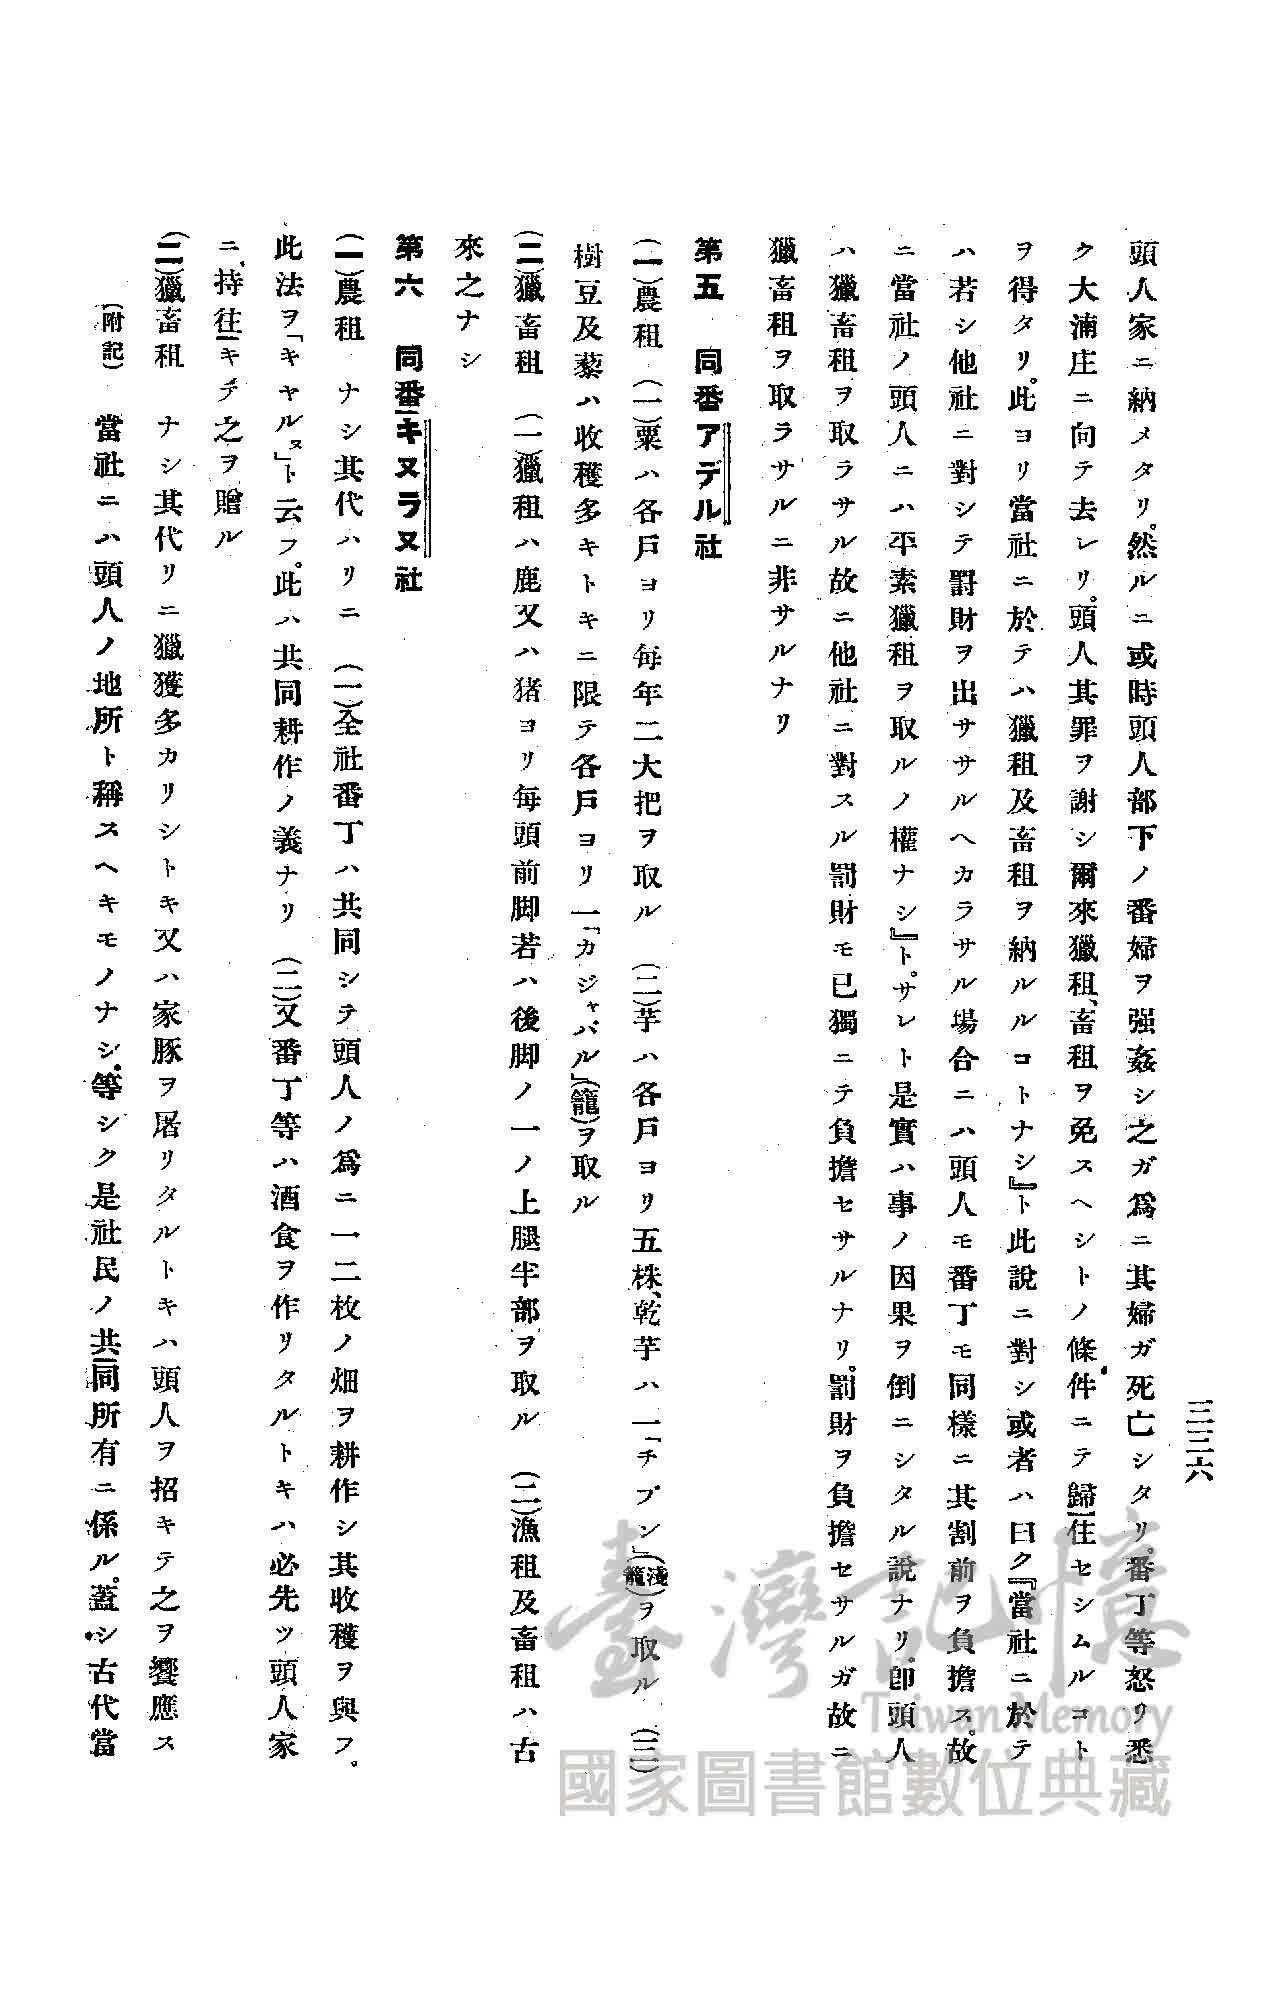 三三六
頭人家ニ納メタリ。然ルニ或時頭人部下ノ番婦ヲ强姦シ之ガ爲ニ其婦ガ死亡シタリ。番丁等怒リ悉
ク大湳庄ニ向テ去レリ。頭人其罪ヲ謝シ爾來獵租、畜租ヲ免スヘシトノ條件ニテ歸住セシムルコト
ヲ得タリ。此ヨリ當社ニ於テハ獵租及畜租ヲ納ルルコトナシ』ト此說ニ對シ或者ハ曰ク『當社ニ於テ
ハ若シ他社ニ對シテ罸財ヲ出ササルヘカラサル場合ニハ頭人モ番丁モ同樣ニ其割前ヲ負擔ス。故
ニ當社ノ頭人ニハ平素獵租ヲ取ルノ權ナシ』ト。サレト是實ハ事ノ因果ヲ倒ニシタル說ナリ。卽頭人
ハ獵畜租ヲ取ラサル故ニ他社ニ對スル罰財モ已獨ニテ負擔セサルナリ。罰財ヲ負擔セサルガ故ニ
獵畜租ヲ取ラサルニ非サルナリ
第五　同番アデル社
(一)農租　(一)粟ハ各戶ヨリ每年二大把ヲ取ル　(二)芋ハ各戶ヨリ五株、乾芋ハ一「チブン」(淺籠)ヲ取ル　(三)
樹豆及藜ハ收穫多キトキニ限テ各戶ヨリ一「カジャバル」(籠)ヲ取ル
(二)獵畜租　(一)獵租ハ鹿又ハ猪ヨリ每頭前脚若ハ後脚ノ一ノ上腿半部ヲ取ル　(二)漁租及畜租ハ古
來之ナシ
第六　同番キヌラヌ社
(一)農租　ナシ其代ハリニ　(一)全社番丁ハ共同シテ頭人ノ爲ニ一二枚ノ畑ヲ耕作シ其收穫ヲ與フ。
此法ヲ「キヤルヌ」ト云フ。此ハ共同耕作ノ義ナリ　(二)又番丁等ハ酒食ヲ作リタルトキハ必先ツ頭人家
ニ持往キテ之ヲ贈ル
(二)獵畜租　ナシ其代リニ獵獲多カリシトキ又ハ家豚ヲ屠リタルトキハ頭人ヲ招キテ之ヲ饗應ス
(附記)　當社ニハ頭人ノ地所ト稱スヘキモノナシ。等シク是社民ノ共同所有ニ係ル。蓋シ古代當
臺灣記憶
Taiwan Memory
國家圖書館數位典藏